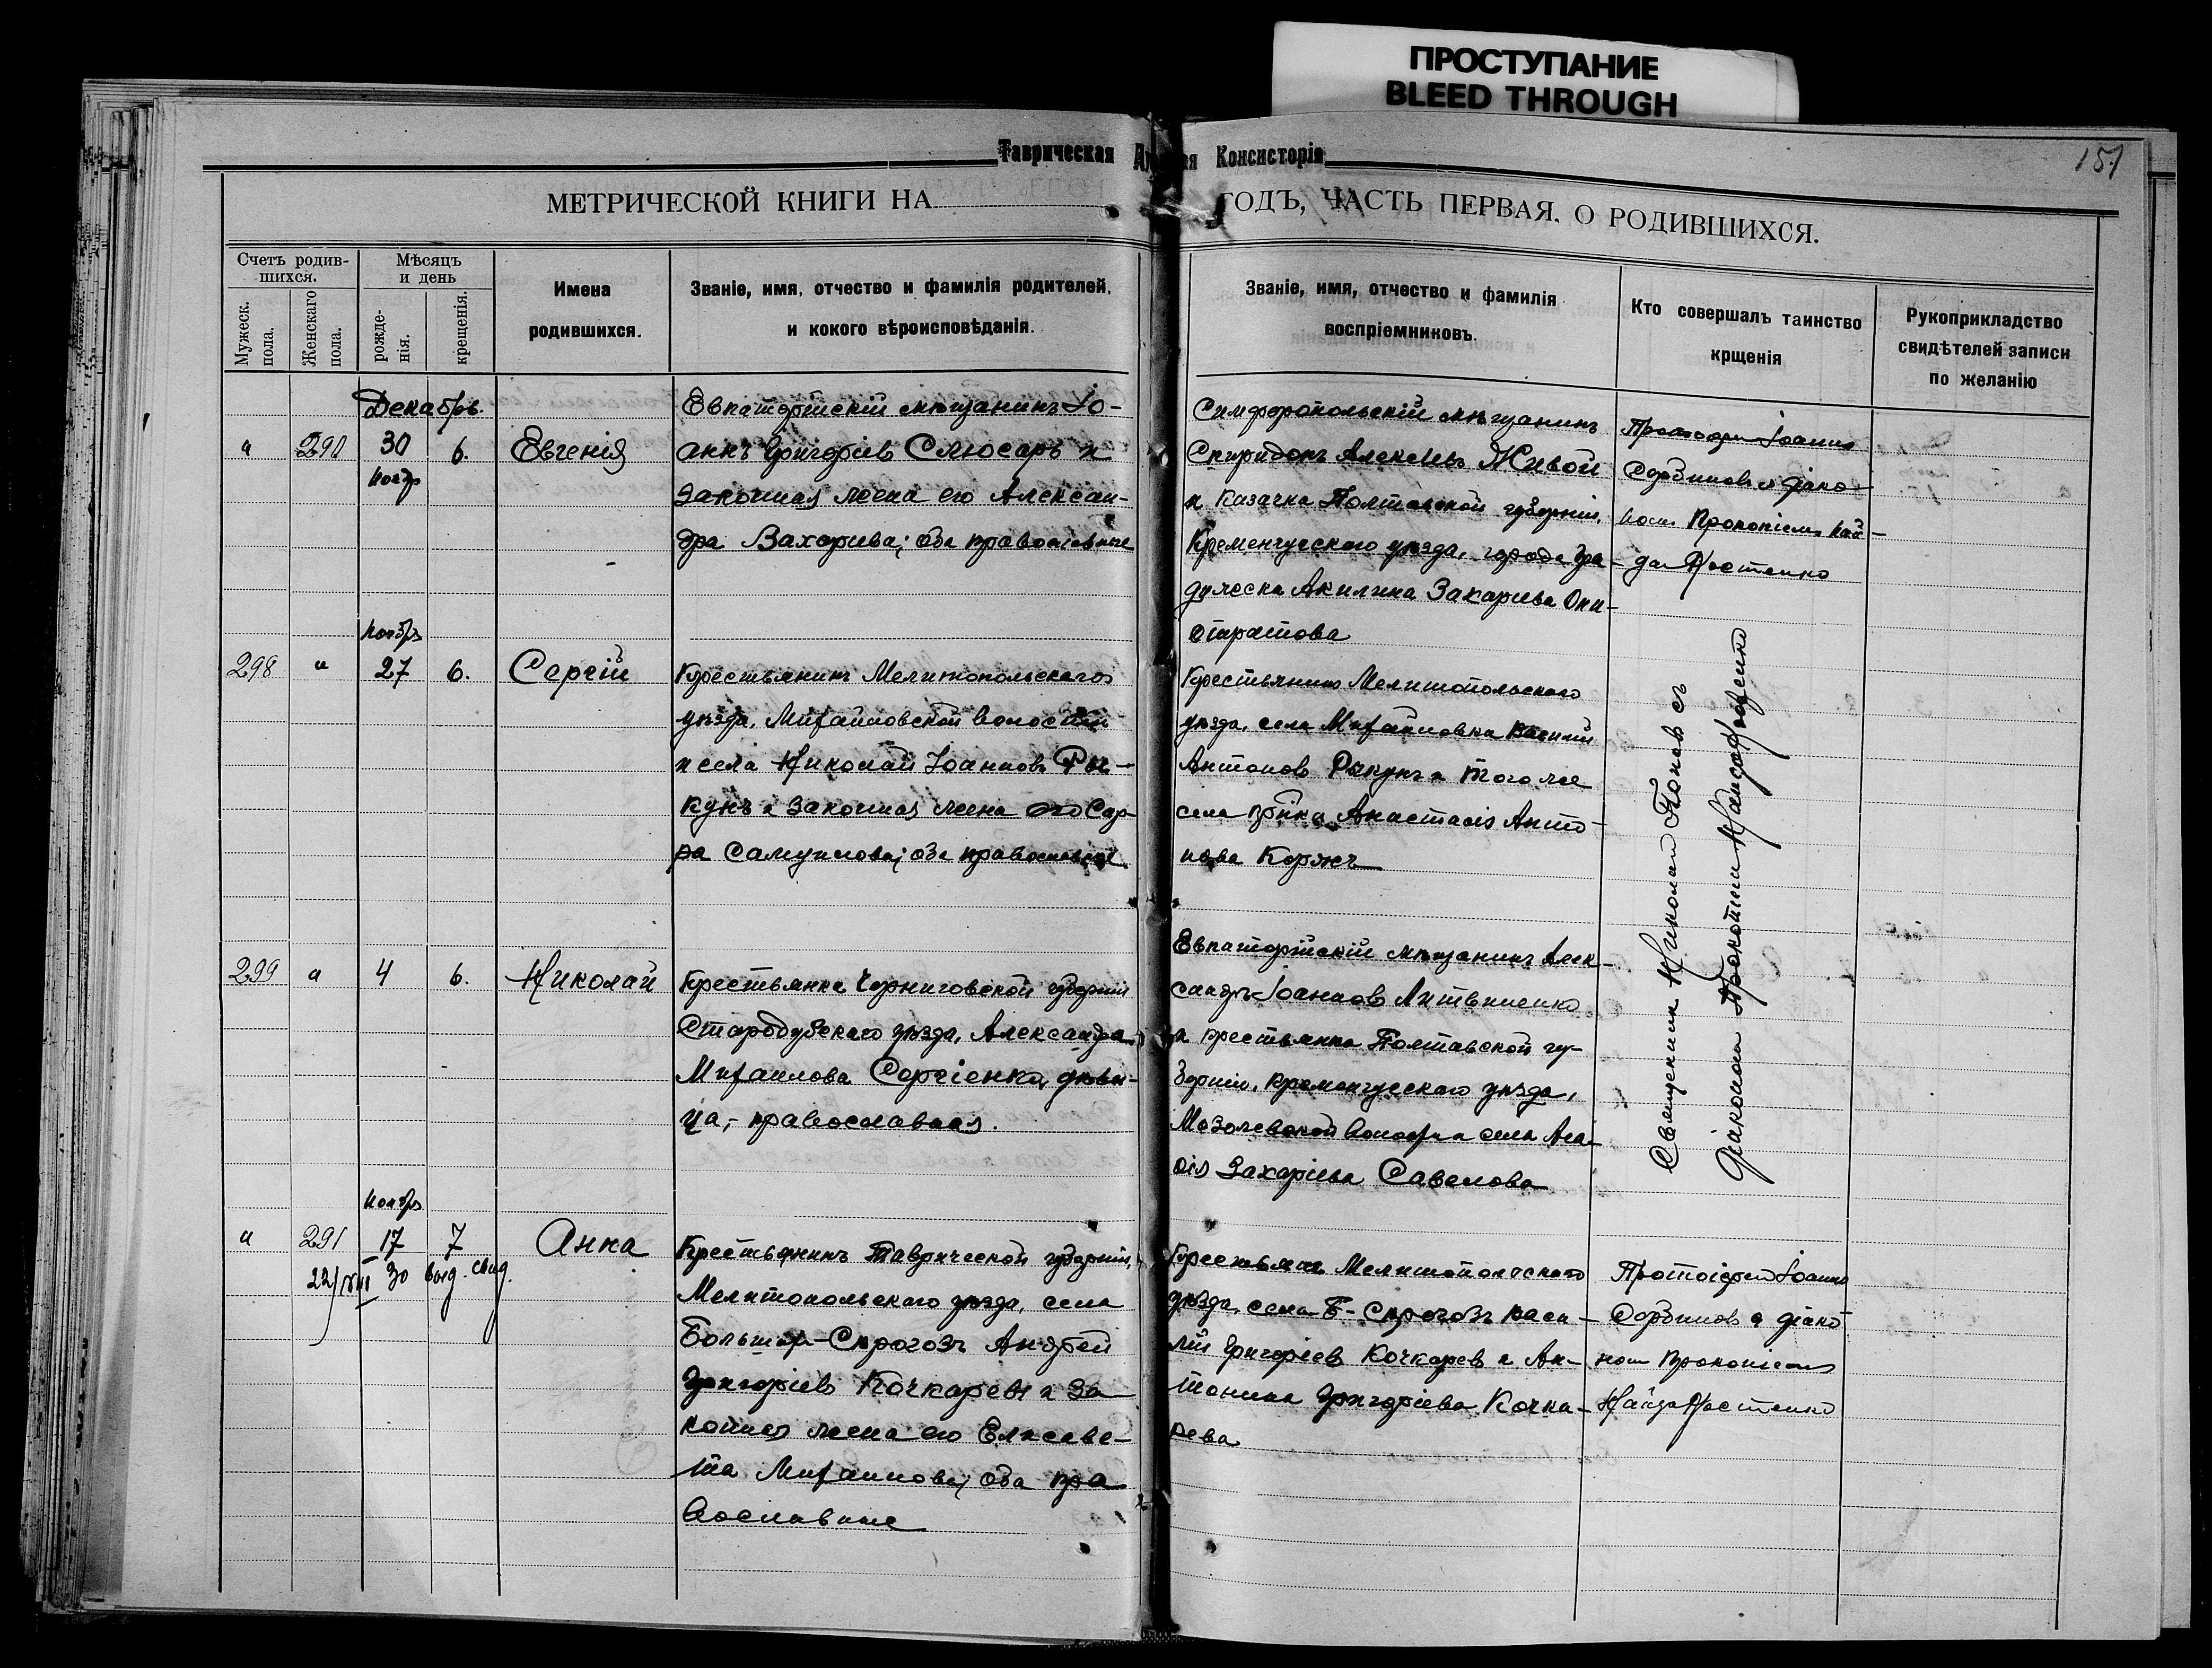 ПРОСТУПАНИЕ
BLEED THROUGH
Таврическая Консисторія
151
МЕТРИЧЕСКОЙ КНИГИ НА ГОДЪ, ЧАСТЬ ПЕРВАЯ. О РОДИВШИХСЯ.
Счетъ родив-
шихся.
Мужеск.
пола.
Женскаго
пола.
Мѣсяцъ
и день
рожде-
нія.
крещенія.
Имена
родившихся.
Званіе, имя, отчество и фамилія родителей,
и кокого вѣроисповѣданія.
Званіе, имя, отчество и фамилія
воспріемниковъ.
Кто совершалъ таинство
крщенія
Рукоприкладство
свидѣтелей записи
по желанію
Декабрь.
" 290 30 6. Евгенія
нояб
Евпаторійскій мѣщанинъ Іо-
аннъ Григоріевъ Слюсарь и
законная жена его Алексан-
дра Захаріева; оба православные
Симферопольскій мѣщанинъ
Спиридонъ Алексѣевъ Живой
и казачка Полтавской губерніи,
Кременчугскаго уѣзда, города Гра-
дижска Акилина Захаріева
Протоіерей Іоаннъ
Сербиновъ и діако-
номъ Прокопіемъ Най-
да Костенко
ноябрь
298 " 27 6. Сергій
Крестьянинъ Мелитопольскаго
уѣзда, Михайловской волости
и села Николай Іоанновъ Ра-
кунъ и законная жена его Сар-
ра Самуилова; оба православные
Крестьянинъ Мелитопольскаго
уѣзда, села Михайловка Василій
Антоновъ Ракунъ и того же
села Анастасія Анто-
нова Коржъ
299 " 4 6. Николай
Крестьянка Черниговской губерніи
Стародубскаго уѣзда, Александра
Михаилова Сергіенко, дѣви-
ца, православная.
Евпаторійскій мѣщанинъ Алек-
сандръ Іоанновъ Литвиненко
и крестьянка Полтавской гу-
берніи, Кременчугскаго уѣзда,
волости и села
Захаріева Савелова
Священникъ Николай Поповъ съ
діакономъ Прокопіемъ
ноябрь
" 291 17 7 Анна
22/XII 30 выд. свид.
Крестьянинъ Таврической губерніи,
Мелитопольскаго уѣзда, села
Большой-Сѣрогозъ Андрей
Григоріевъ Кочкаревъ и за
конная жена его Елисаве-
та Михаилова; оба пра
вославные
Крестьяне Мелитопольскаго
уѣзда, села Б-Сѣрогозъ Васи-
лій Григоріевъ Кочкаревъ и Ан-
тонина Григоріева Кочка-
рева
Протоіерей Іоаннъ
Сербиновъ и діако-
номъ Прокопіемъ
Найда Костенко